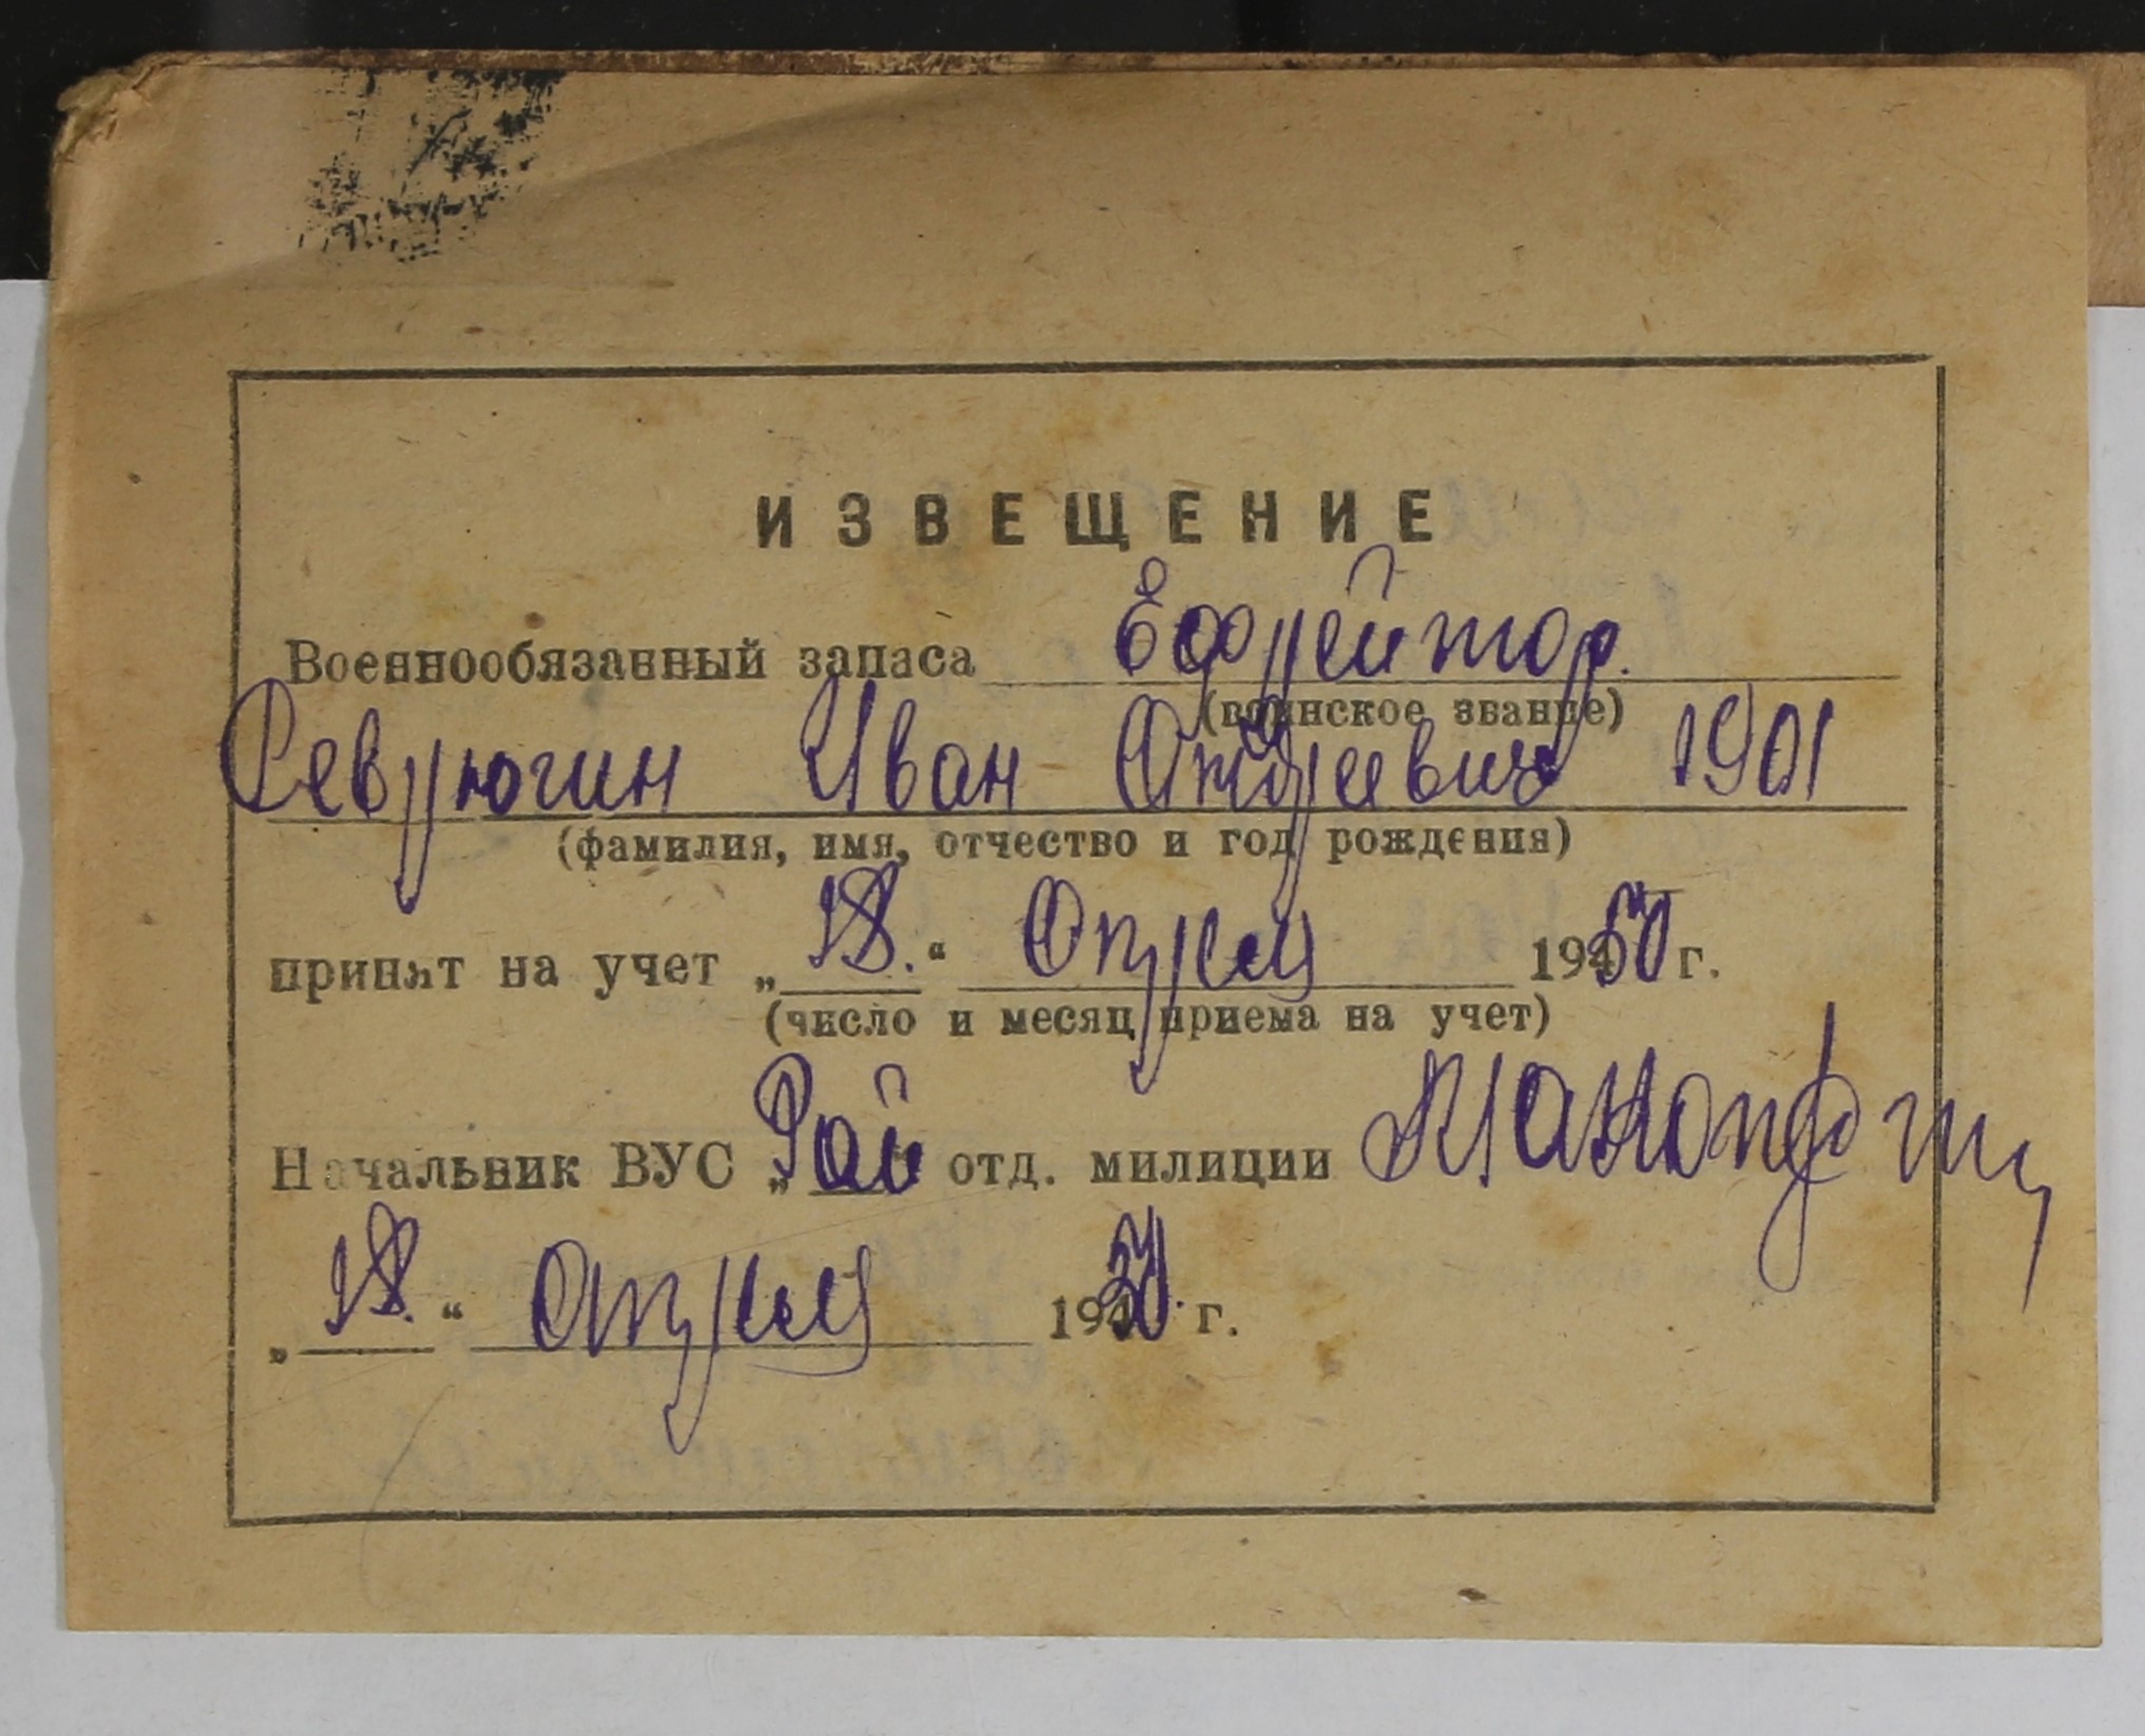 ИЗВЕЩЕНИЕ
Военнообязанный запаса Ефрейтор.
(воинское звание)
Севрюгин Иван Андреевич 1901
(фамилия, имя, отчество и год рождения)
принят на учет „18.“ Апреля 1950 г.
(число и месяц приема на учет)
Начальник ВУС „Рай отд. милиции
„18.“ Апреля 1950. г.